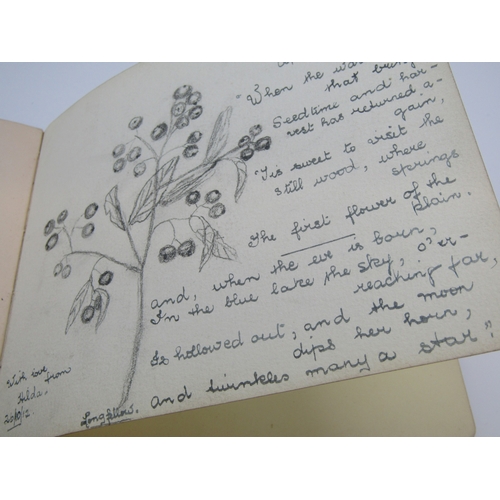 "When the wa
that bring
Seedtime and har-
vest has returned a-
gain,
'Tis sweet to visit the
still wood, where
springs
The first flower of the
plain.
and, when the eve is born,
In the blue lake the sky, o'er-
reaching far,
Is hollowed out, and the moon
dips her horn,
and twinkles many a star".
Longfellow.
With love
from
Hilda.